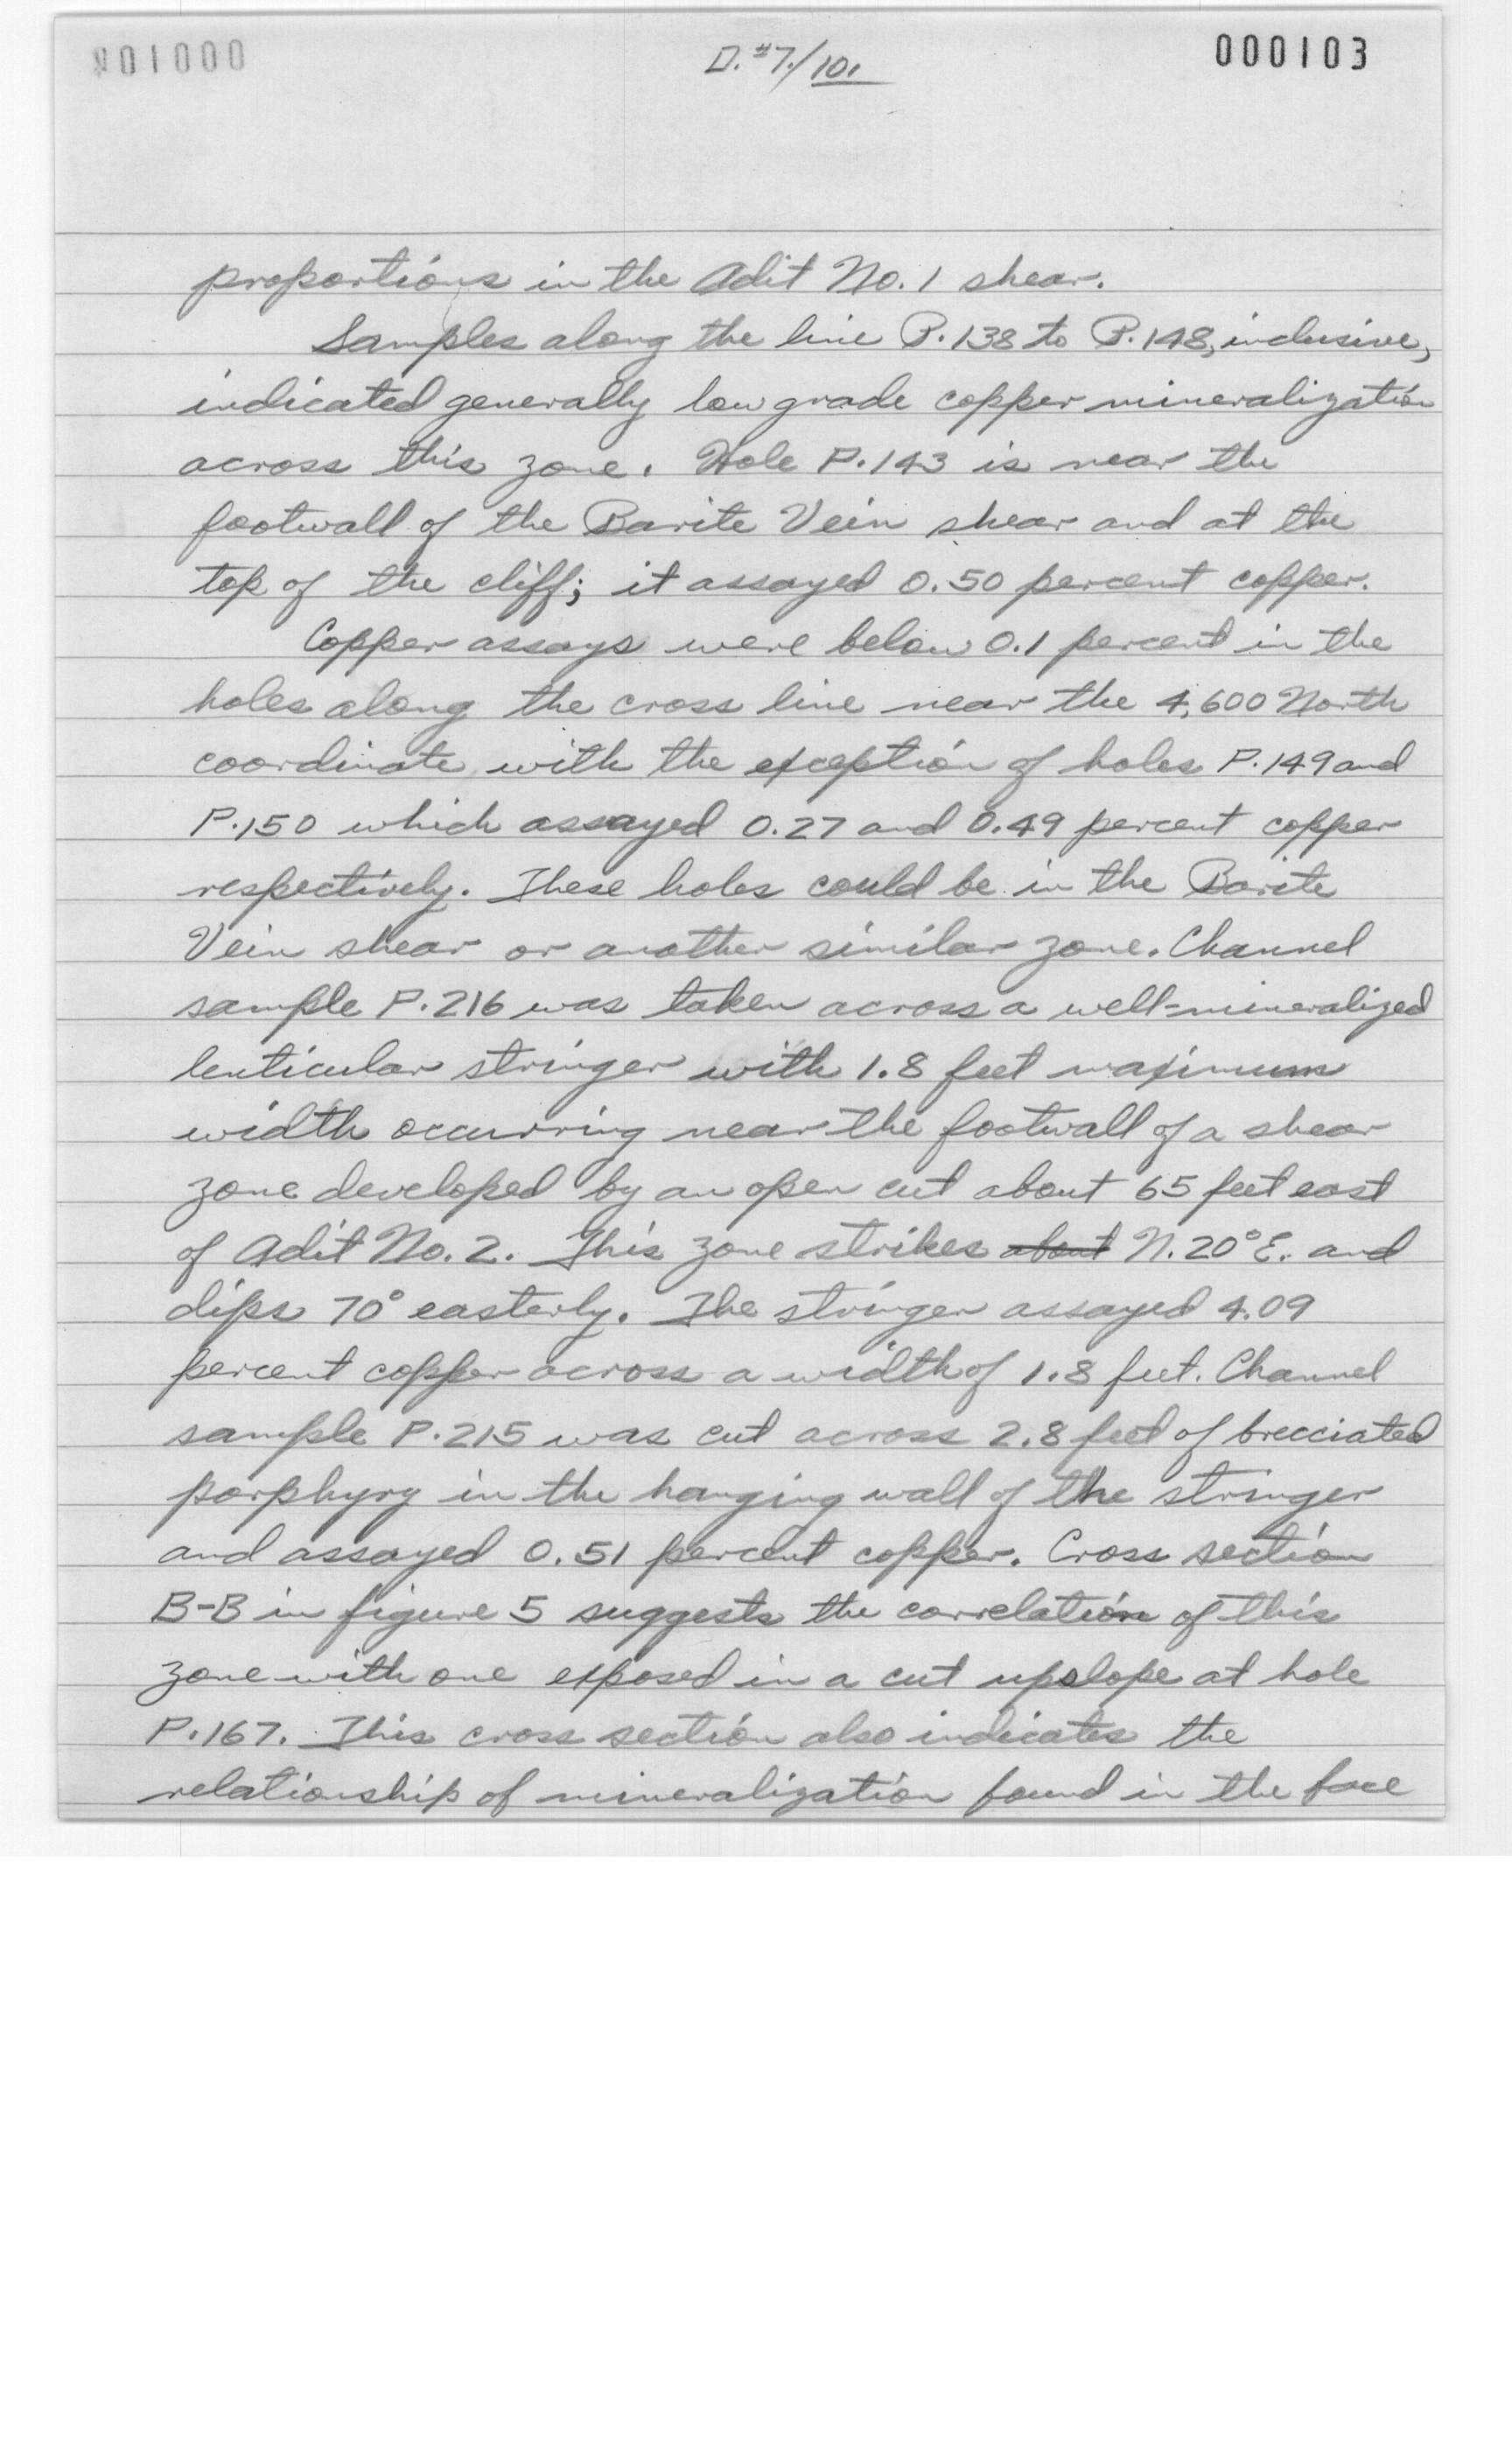 001000
D.#7./101
000103
proportions in the Adit No. 1 shear.
Samples along the line P.138 to P.148, inclusive,
indicated generally low grade copper mineralization
across this zone. Hole P.143 is near the
footwall of the Barite Vein shear and at the
top of the cliff; it assayed 0.50 percent copper.
Copper assays were below 0.1 percent in the
holes along the cross line near the 4,600 North
coordinate with the exception of holes P.149 and
P.150 which assayed 0.27 and 0.49 percent copper
respectively. These holes could be in the Barite
Vein shear or another similar zone. Channel
sample P.216 was taken across a well-mineralized
lenticular stringer with 1.8 feet maximum
width occurring near the footwall of a shear
zone developed by an open cut about 65 feet east
of Adit No. 2. This zone strikes about N.20°E. and
dips 70° easterly. The stringer assayed 4.09
percent copper across a width of 1.8 feet. Channel
sample P.215 was cut across 2.8 feet of brecciated
porphyry in the hanging wall of the stringer
and assayed 0.51 percent copper. Cross section
B-B in figure 5 suggests the correlation of this
zone with one exposed in a cut upslope at hole
P.167. This cross section also indicates the
relationship of mineralization found in the face